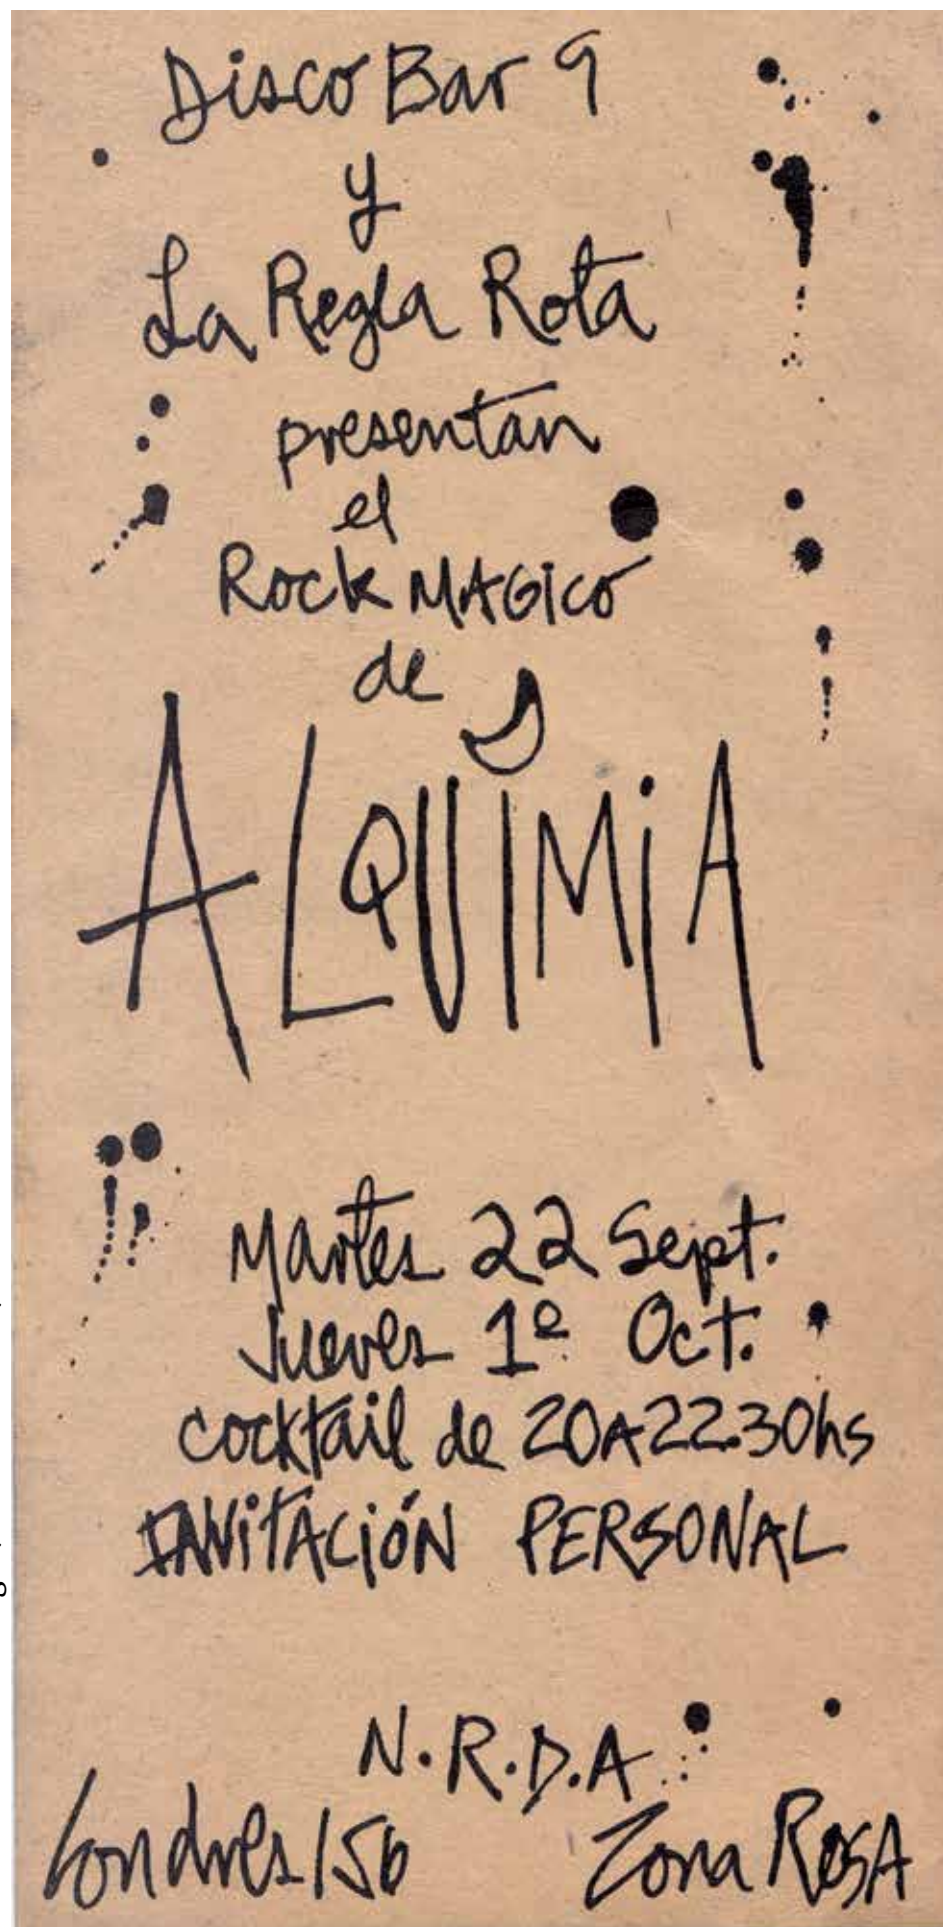 Disco Bar 9
y
La Regla Rota
presentan
el
Rock MAGico
de
ALQUÍMiA
Martes 22 Sept.
Jueves 1º Oct.
cocktail de 20A22.30hs
INViTACiÓN PERSONAL
N.R.D.A.
Londres 156 Zona RosA